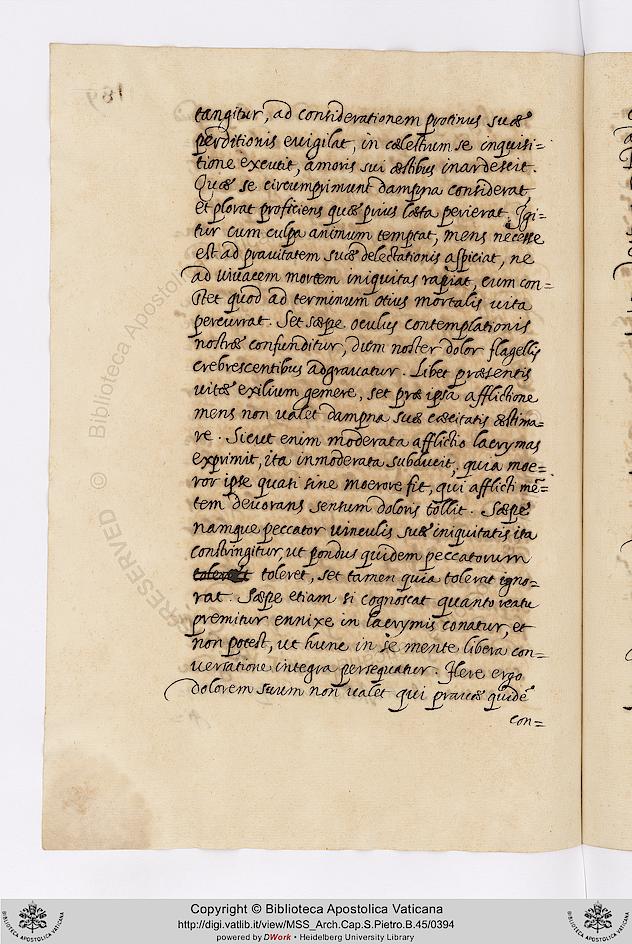 tangitur, ad considerationem protinus suæ
perditionis euigilat, in cælestium se inquisi=
tione excutit, amoris sui æstibus inardescit.
Quæ se circumprimunt dampna considerat
et plorat proficiens quæ prius læta perierat. Igi=
tur cum culpa animum temptat, mens necesse
est ad prauitatem suæ delectationis aspiciat, ne
ad uiuacem mortem iniquitas rapiat, cum con=
stet quod ad terminum otius mortalis uita
percurrat. Set sæpe oculus contemplationis
nostræ confunditur, dum noster dolor flagellis
crebrescentibus adgrauatur. Libet præsentis
uitæ exilium gemere, set præ ipsa afflictione
mens non ualet dampna suæ cæcitatis æstima=
re. Sicut enim moderata afflictio lacrymas
exprimit, ita inmoderata subducit, quia moe=
ror ipse quasi sine moerore fit, qui afflicti mē=
tem deuorans sensum doloris tollit. Sæpe
namque peccator uinculis suæ iniquitatis ita
constringitur, ut pondus quidem peccatorum
toleret, set tamen quia tolerat igno=
rat. Sæpe etiam si cognoscat quanto reatu
premitur ennixe in lacrymis conatur, et
non potest, ut hunc in se mente libera con=
uersatione integra persequatur. Flere ergo
dolorem suum non ualet qui prauæ quidē
con=
189
© Biblioteca Apostolica
RESERVED
Copyright © Biblioteca Apostolica Vaticana
http://digi.vatlib.it/view/MSS_Arch.Cap.S.Pietro.B.45/0394
powered by DWork • Heidelberg University Library
BIBLIOTECA APOSTOLICA VATICANA
BIBLIOTECA APOSTOLICA VATICANA